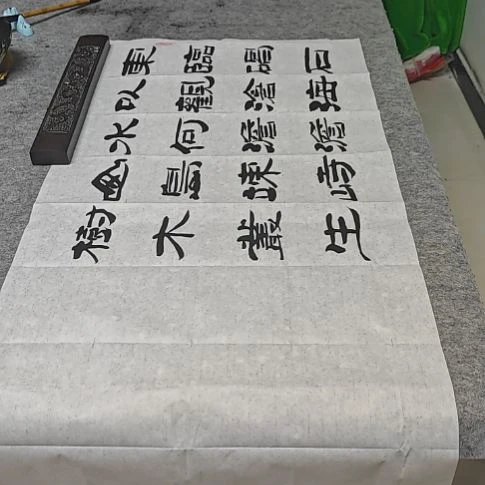 東臨碣石
以觀滄海
水何澹澹
山島竦峙
樹木叢生